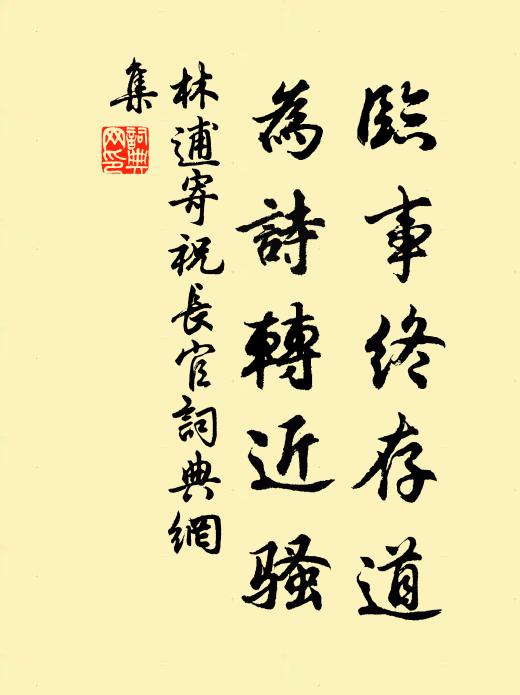 臨事終存道
為詩轉近騷
林逋寄祝長官詞典網
集
詞典網印